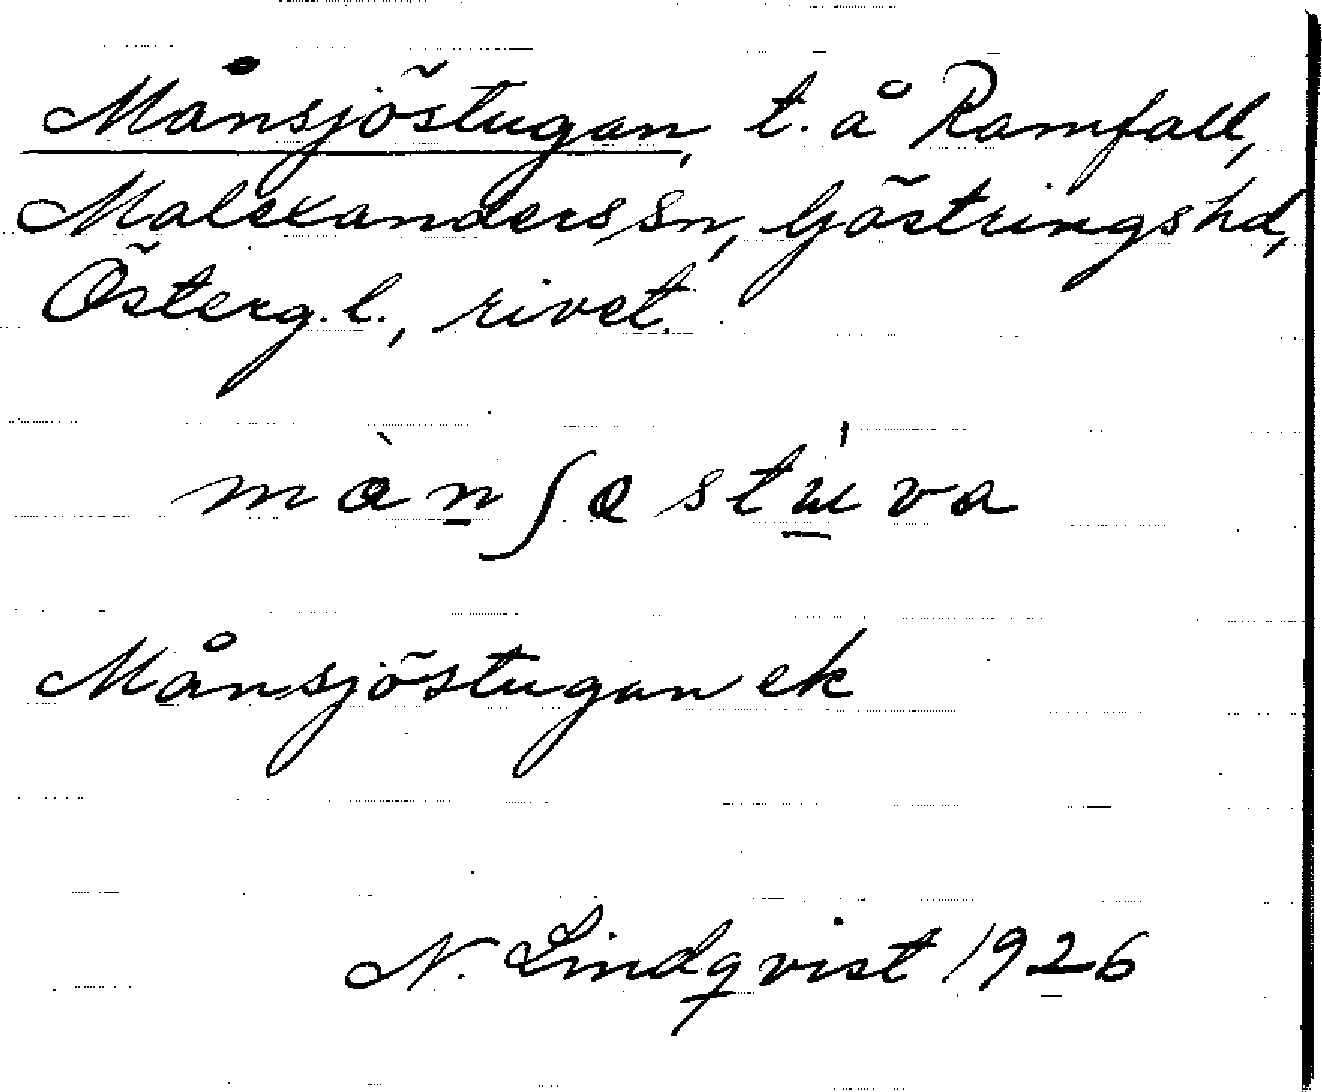 Månsjöstugan, t. å Ramfall,
Malexanders sn, Göstrings hd,
Österg. l., rivet.
Månsjöstugan ek
N. Lindqvist 1926